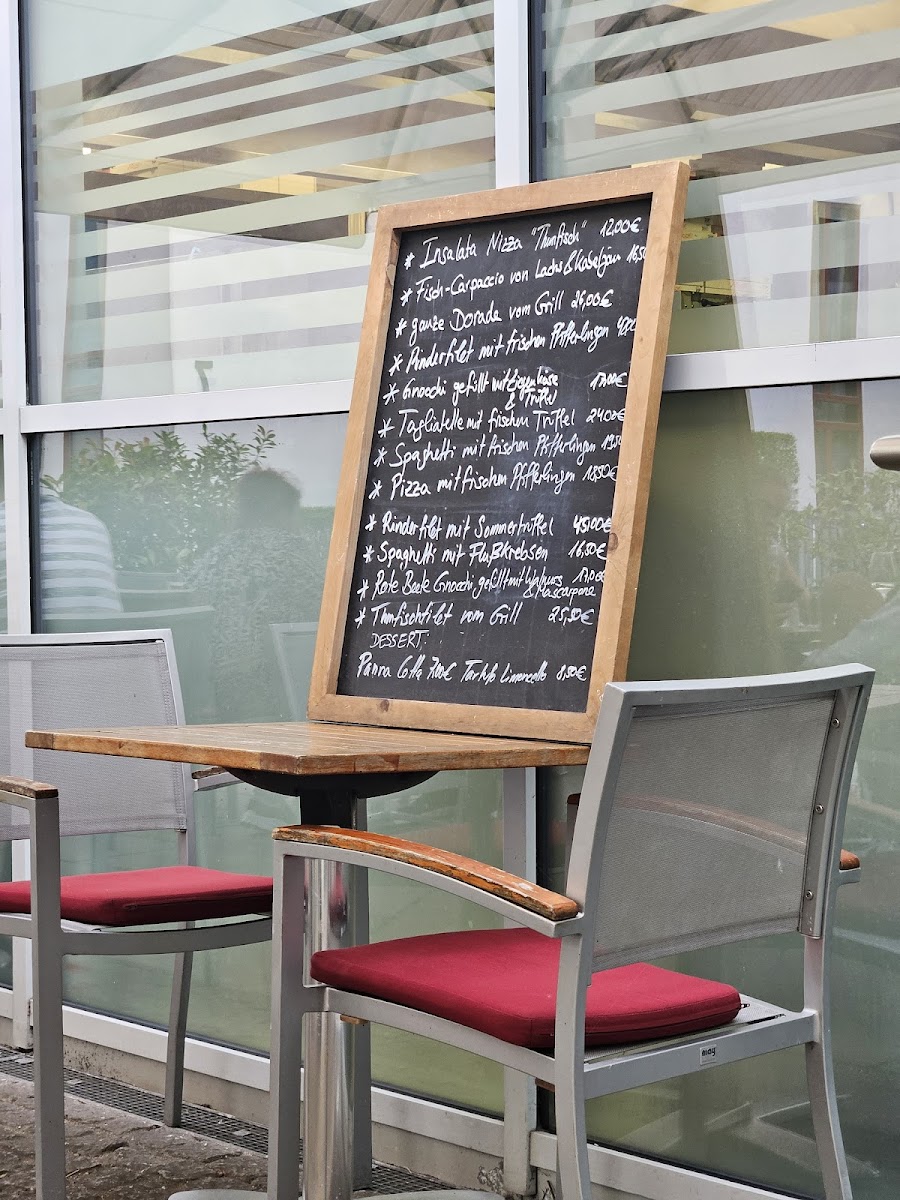 * Insalata Nizza "Thunfisch" 12,00€
* Fisch-Carpaccio von Lachs & Kabeljau 16,50
* ganze Dorade vom Grill 26,00€
* Rinderfilet mit frischen Pfifferlingen
* Gnocchi gefüllt mit Ziegenkäse 17,00€
& Trüffel
* Tagliatelle mit frischem Trüffel 24,00€
* Spaghetti mit frischen Pfifferlingen
* Pizza mit frischen Pfifferlingen
* Rinderfilet mit Sommertrüffel 45,00€
* Spaghetti mit Flußkrebsen 16,50€
* Rote Beete Gnocchi gefüllt mit Walnuss 17,00€
& Mascarpone
* Thunfischfilet vom Grill 25,50€
DESSERT:
Panna Cotta 7,00€ Tartufo Limoncello 8,50€